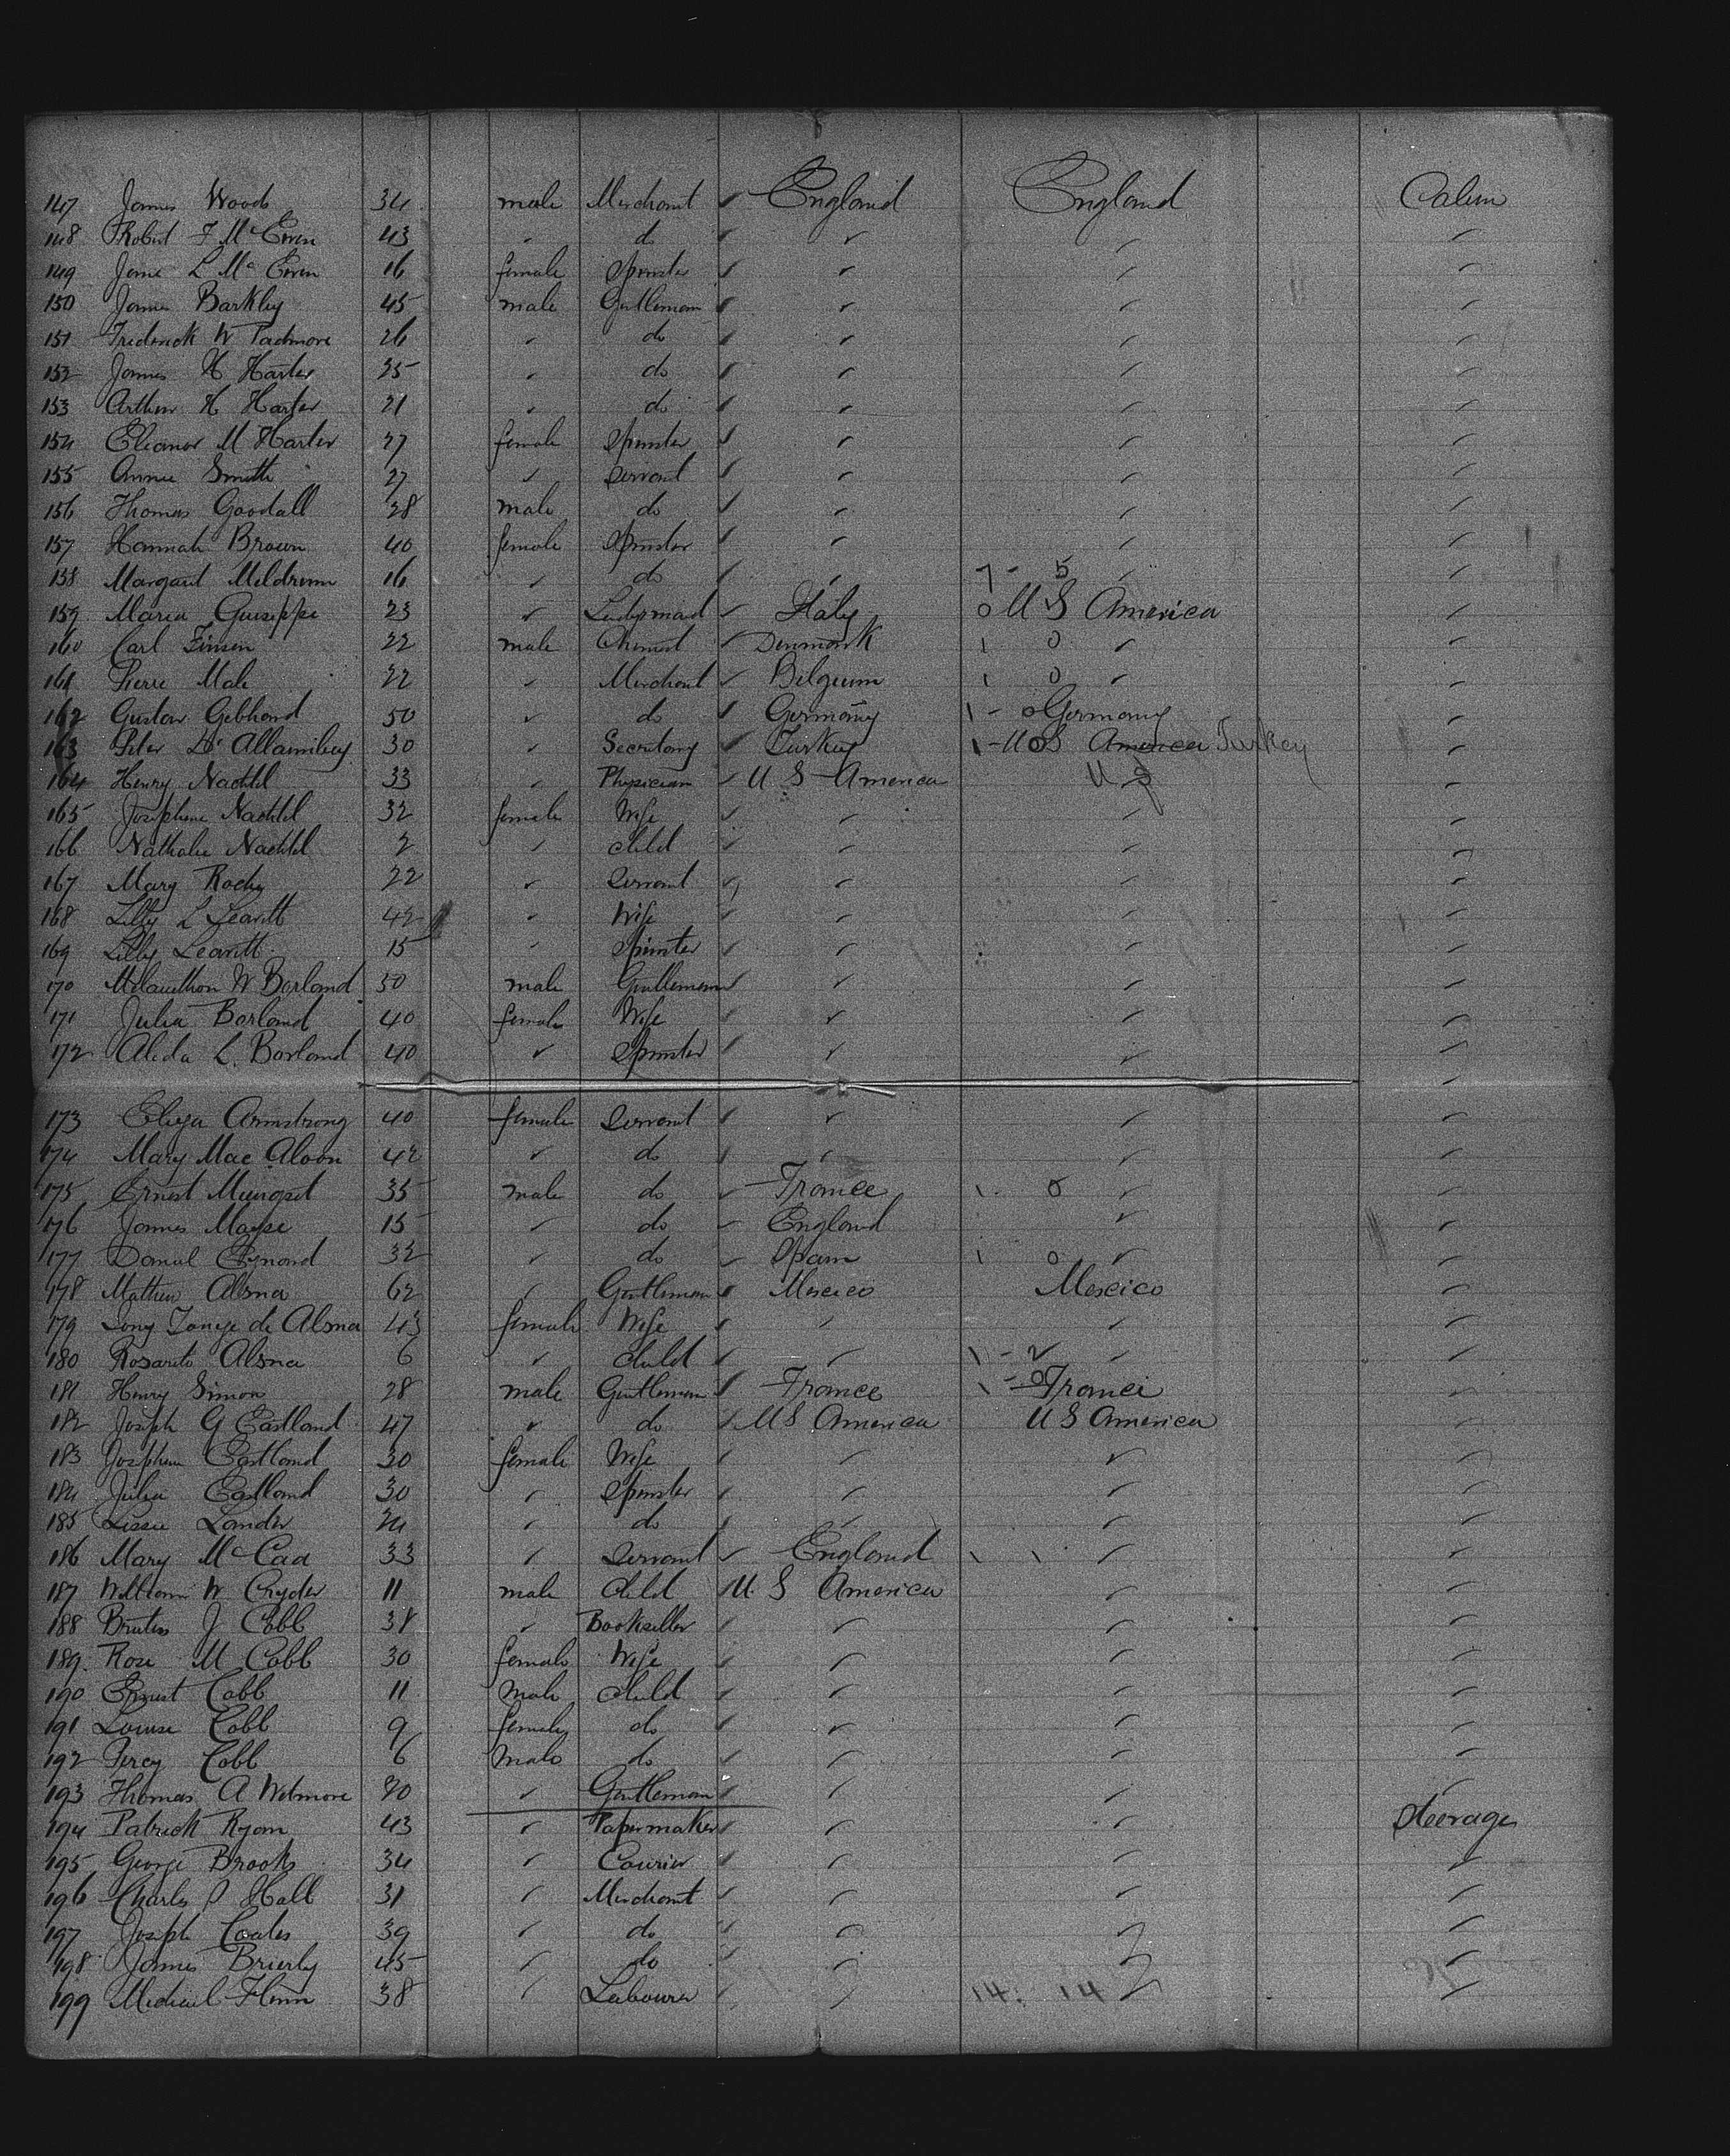 147 James Woods 34 male Merchant England England Cabin
148 Robert F McEwen 43 " do " " "
149 Jane L McEwen 16 female Spinster " " "
150 James Barkley 45 male Gentleman " " "
151 Frederick W Padmore 26 " do " " "
152 James H Harter 25 " do " " "
153 Arthur H Harter 21 " do " " "
154 Eleanor M Harter 27 female Spinster " " "
155 Annie Smith 27 " Servant " " "
156 Thomas Goodall 28 male do " " "
157 Hannah Brown 40 female Spinster " " "
158 Margaret Meldrum 16 " do " 7 - 5 " "
159 Maria Guiseppe 23 " Ladysmaid Italy 0 U S America "
160 Carl Finsen 22 male Chemist Denmark 1 0 " "
161 Pierre Mali 22 " Merchant Belgium 1 0 " "
162 Gustav Gebhard 50 " do Germany 1 - 0 Germany "
163 Peter D' 30 " Secretary Turkey 1 - 0 U S America Turkey "
164 Henry Nachtel 33 " Physician U S America U S "
165 Josephine Nachtel 32 female Wife " " "
166 Nathalie Nachtel 2 " child " " "
167 Mary Roche 22 " Servant " " "
168 Lilly L Leavitt 42 " Wife " " "
169 Lilly Leavitt 15 " Spinster " " "
170 Melancthon W Borland 50 male Gentleman " " "
171 Julia Borland 40 female Wife " " "
172 Alida L. Borland 40 " Spinster " " "
173 Eliza Armstrong 40 female Servant " " "
174 Mary Mac Aloon 42 " do " " "
175 Ernest 35 male do France 1. 0 " "
176 James 15 " do England " "
177 32 " do Spain 1 0 " "
178 Mathew Alsna 62 " Gentleman Mexico Mexico "
179 de Alsna 43 female Wife " " "
180 Rosarito Alsna 6 " child " 1 - 2 " "
181 Henry Simon 28 male Gentleman France 1 - 0 France "
182 Joseph G Eastland 47 " do U S America U S America "
183 Josephine Eastland 30 female Wife " " "
184 Julia Eastland 30 " Spinster " " "
185 Lissie Lander 24 " do " " "
186 Mary McCaa 33 " Servant England 1 1 " "
187 William W Cryder 11 male child U. S America " "
188 Brutus J Cobb 38 " Bookseller " " "
189. Rose M Cobb 30 female Wife " " "
190 Ernest Cobb 11 Male child " " "
191 Louise Cobb 9 female do " " "
192 Percy Cobb 6 Male do " " "
193 Thomas A Wetmore 40 " Gentleman " " "
194 Patrick Ryan 43 " Papermaker " " Steerage
195 George Brooks 34 " Courier " " "
196 Charles P Hall 31 " Merchant " " "
197 Joseph Coates 39 " do " " "
198 James Brierly 45 " do " " "
199 Michael Flinn 38 " Labourer " 14. 14 " "